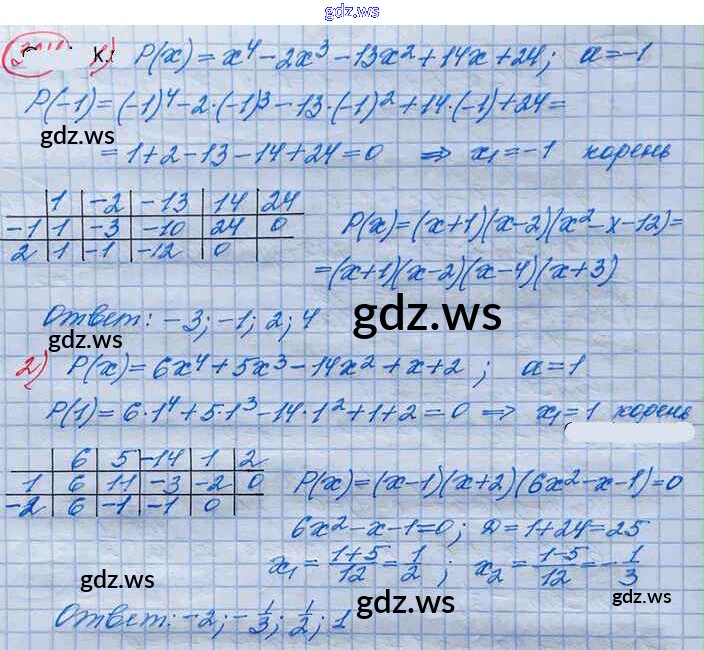 gdz.ws
К.1 1) P(x) = x⁴ - 2x³ - 13x² + 14x + 24; a = -1
P(-1) = (-1)⁴ - 2·(-1)³ - 13·(-1)² + 14·(-1) + 24 =
gdz.ws
= 1 + 2 - 13 - 14 + 24 = 0 ⇒ x₁ = -1 корень
1 | -2 | -13 | 14 | 24
-1 | 1 | -3 | -10 | 24 | 0
2 | 1 | -1 | -12 | 0
P(x) = (x+1)(x-2)(x²-x-12) =
= (x+1)(x-2)(x-4)(x+3)
Ответ: -3; -1; 2; 4
gdz.ws
gdz.ws
2) P(x) = 6x⁴ + 5x³ - 14x² + x + 2; a = 1
P(1) = 6·1⁴ + 5·1³ - 14·1² + 1 + 2 = 0 ⇒ x₁ = 1 корень
6 | 5 | -14 | 1 | 2
1 | 6 | 11 | -3 | -2 | 0
-2 | 6 | -1 | -1 | 0
P(x) = (x-1)(x+2)(6x²-x-1) = 0
6x² - x - 1 = 0; D = 1 + 24 = 25
x₁ = (1+5)/12 = 1/2; x₂ = (1-5)/12 = -1/3
gdz.ws
gdz.ws
gdz.ws
Ответ: -2; -1/3; 1/2; 1